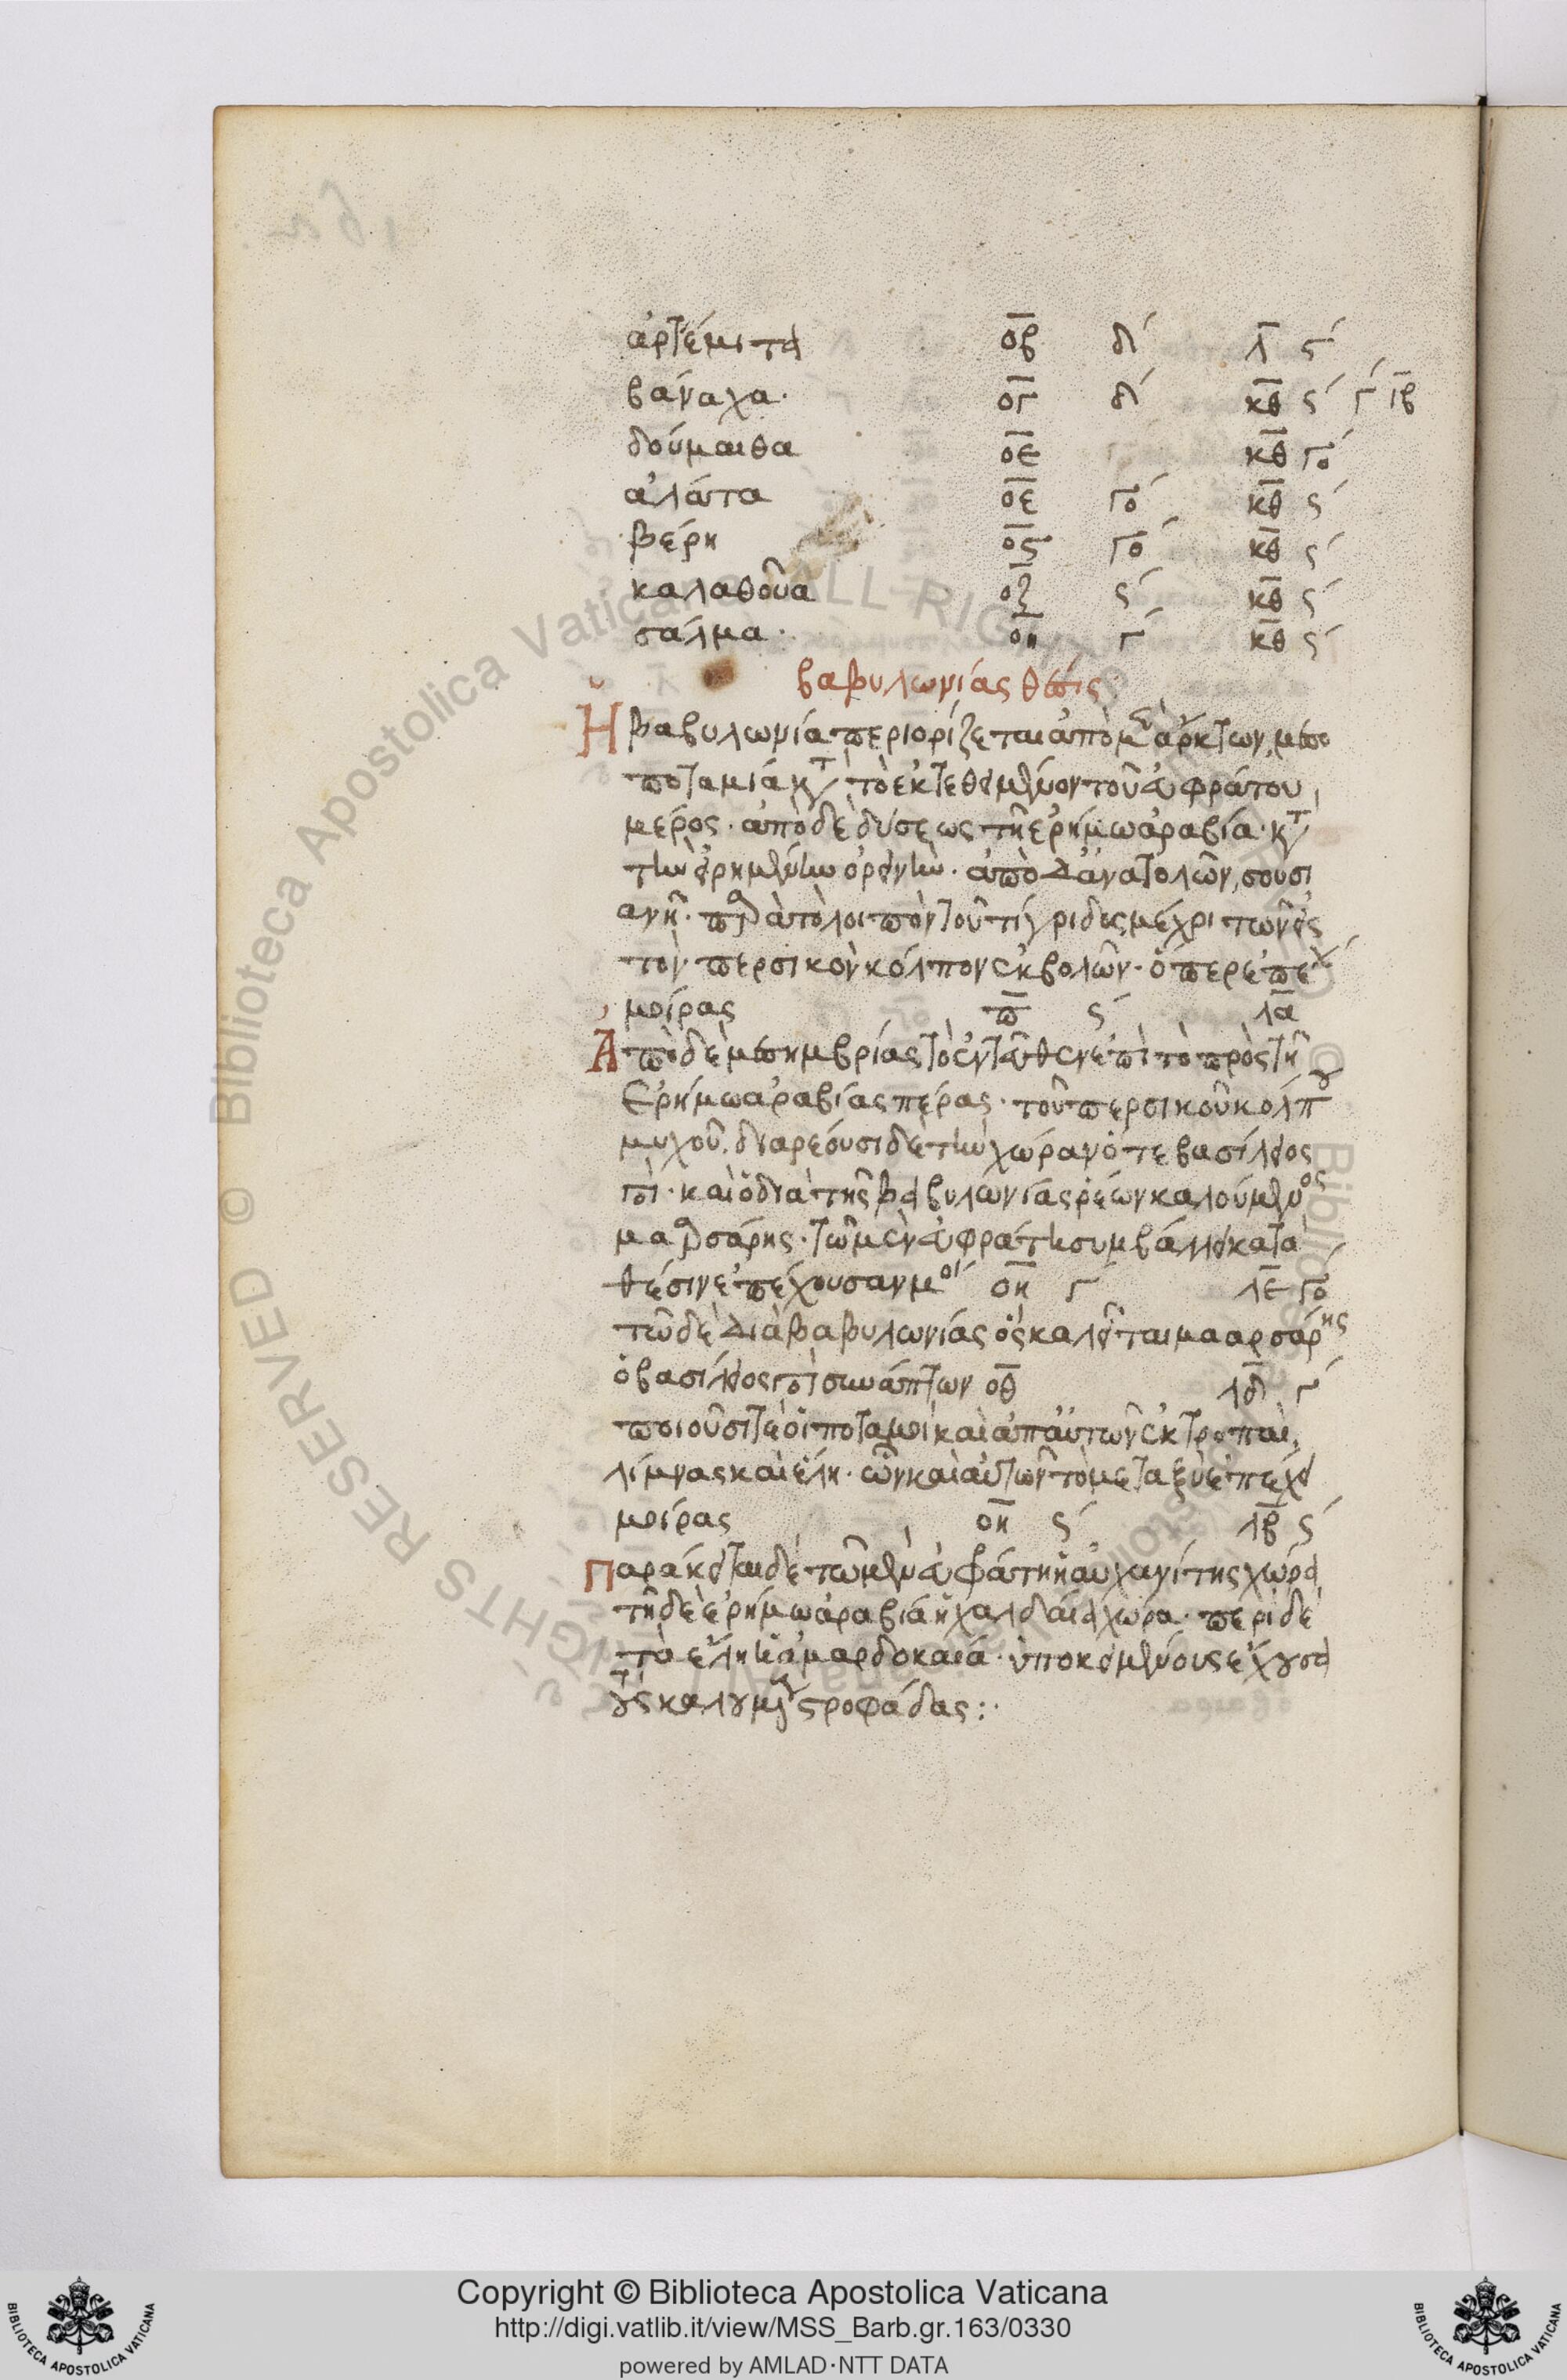 ἀρτέμιτα ο̅β̅ δ´ λ̅ ϛ´
βάναχα· ο̅γ̅ δ´ κ̅θ̅ ϛ´ γ´ ι̅β̅
δούμαιθα ο̅ε̅ κ̅θ̅ γο´
ἀλάτα ο̅ε̅ γο´ κ̅θ̅ ϛ´
βέρη ο̅ϛ̅ γο´ κ̅θ̅ ϛ´
καλαθοῦα ο̅ζ̅ ϛ´ κ̅θ̅ ϛ´
σάλμα· ο̅η̅ γ´ κ̅θ̅ ϛ´
βαβυλωνίας θέσις
Ἡ βαβυλωνία περιορίζεται ἀπὸ μὲν ἄρκτων, μεσο
ποταμιά κατ τὸ ἐκτεθειμένον τοῦ εὐφράτου
μέρος· ἀπὸ δὲ δύσεως τῆ ἐρήμω ἀραβία· κατ
τὴν εἰρημένην ὀρεινὴν· ἀπὸ δ' ἀνατολῶν, σουσι
ανῆ· παρὰ τὸ λοιπὸν τοῦ τίγριδος μέχρι τῶν εἰς
τὸν περσικὸν κόλπον ἐκβολῶν· ὅπερ ἐπέχ
μοίρας π̅ ϛ´ λ̅α̅
Ἀπὸ δὲ μεσημβρίας τὸ ἐντεῦθεν ἐπὶ τὸ πρὸς τῆ
ἐρήμω ἀραβίας πέρας· τοῦ περσικοῦ κόλπου
μυχοῦ. διαρέουσι δὲ τὴν χώραν ὅ τε βασίλειος
ποτ· καὶ ὁ διὰ τῆς βαβυλωνίας ῥέων καλούμενος
μααρσάρης· τῶ μὲν εὐφράτη συμβάλλει κατὰ
θέσιν ἐπέχουσαν μοί ο̅η̅ γ´ λ̅ε̅ γο´
τῶ δὲ διὰ βαβυλωνίας ὃς καλεῖται μααρσάρης
ὁ βασίλειος ποτ συνάπτων ο̅θ̅ λ̅δ̅ γ´
ποιοῦσι τε οἱ ποταμοὶ καὶ ἀπ' αὐτῶν ἐκτροπαὶ,
λίμνας καὶ ἕλη· ὧν καὶ αὐτῶν τὸ μεταξὺ ἐπέχει
μοίρας ο̅η̅ ϛ´ λ̅β̅ ϛ´
Παράκειται δὲ τῶ μὲν εὐφάτη ἡ αὐχανίτης χώρα
τῆ δὲ ἐρήμω ἀραβιά ἡ χαλδαία χώρα· περὶ δὲ
τὰ ἕλη ἡ ἀμαρδοκαιά· ὑποκειμένους ἔχουσα
τοὺς καλουμένους στροφάδας:·
© Biblioteca Apostolica Vaticana ALL RIGHTS RESERVED
Copyright © Biblioteca Apostolica Vaticana
http://digi.vatlib.it/view/MSS_Barb.gr.163/0330
powered by AMLAD·NTT DATA
BIBLIOTECA APOSTOLICA VATICANA
BIBLIOTECA APOSTOLICA VATICANA